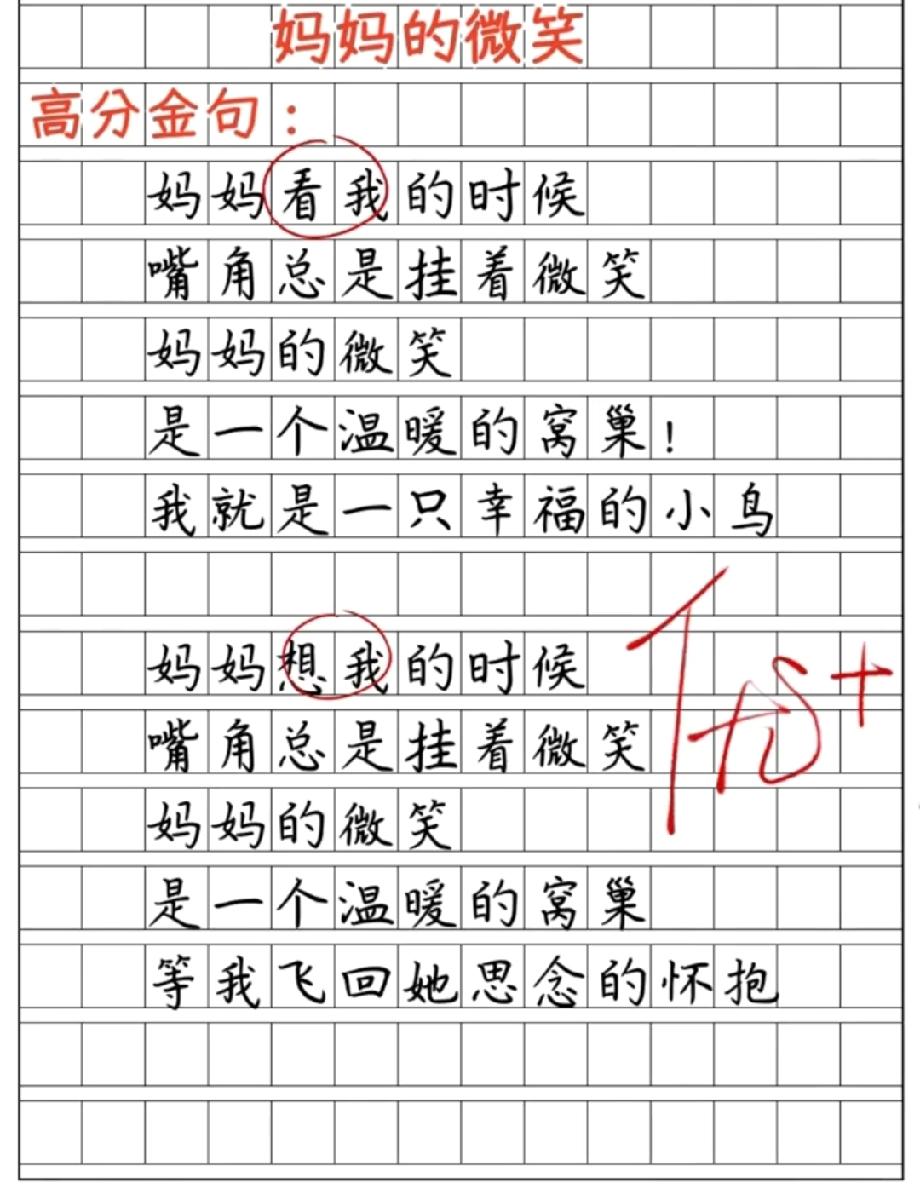 妈妈的微笑
高分金句：
妈妈看我的时候
嘴角总是挂着微笑
妈妈的微笑
是一个温暖的窝巢！
我就是一只幸福的小鸟
妈妈想我的时候
嘴角总是挂着微笑
妈妈的微笑
是一个温暖的窝巢
等我飞回她思念的怀抱